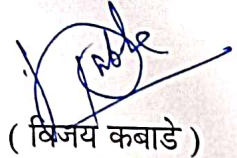 ( विजय कबाडे )